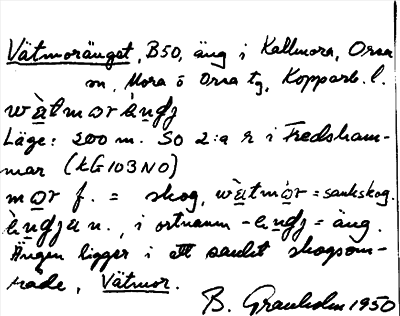 Vätmoränget, B50, äng i Kallmora, Orsa
m, Mora o Orsa tg, Kopparb. l.
wätmorèngj
Läge: 200 m. SO 2:a r i Fredsham-
mar (KG 103 NO)
mor f. = skog, wätmòr = sanskskog.
i ortnamn -engj = äng.
Ängen ligger i ett sankt skogsom-
råde, Vätmor.
B. Granholm 1950